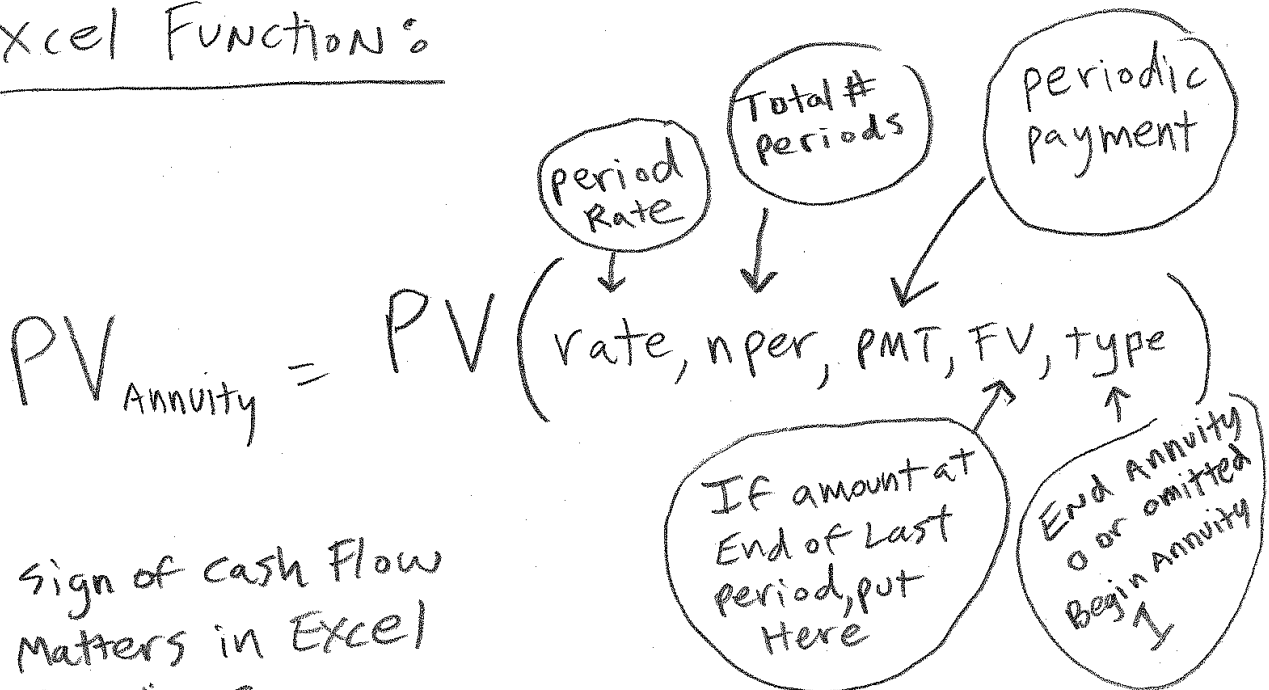 xcel Function:
Total #
periods
periodic
payment
period
Rate
PV Annuity = PV (rate, nper, PMT, FV, type)
If amount at
End of Last
period, put
Here
End Annuity
0 or omitted
Begin Annuity
1
sign of cash Flow
Matters in Excel